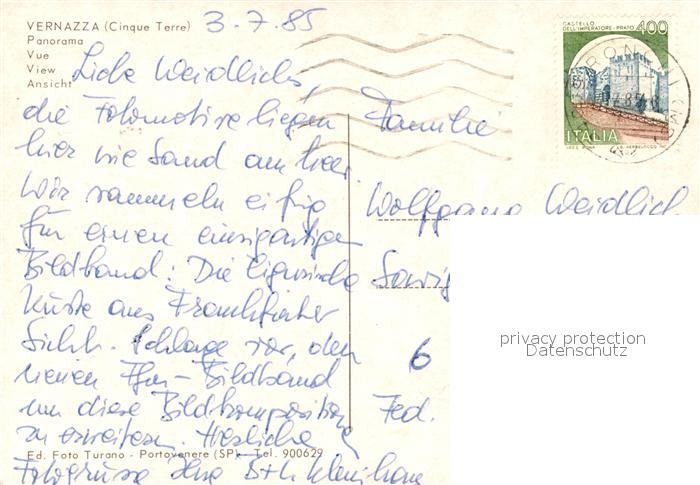 VERNAZZA (Cinque Terre) 3.7.85
Panorama
Vue
View
Ansicht
Liebe Weidlichs,
die Fotomotive liegen
hier wie Sand am Meer.
Wir sammeln eifrig
für einen einzigartigen
Bildband: Die ligurische
Küste aus Frankfurter
Sicht. Schlage vor, den
neuen Ffm-Bildband
um diese Bildkomposition
zu erweitern. Herzliche
Fotogrüsse Ihre
Ed. Foto Turano - Portovenere (SP) - Tel. 900629
CASTELLO
DELL'IMPERATORE - PRATO 400
ITALIA
Familie
Wolfgang Weidlich
6
Fed.
privacy protection
Datenschutz